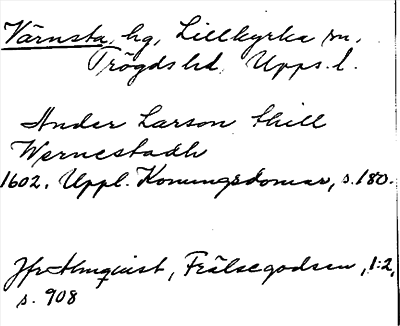 Värnsta, hg, Lillkyrka sn,
Trögds hd, Upps. l.
Ander Larson thill
Wernestadh
1602. Uppl. Konungsdomar, s. 180.
Jfr Almquist, Frälsegodsen, 1:2,
s. 908